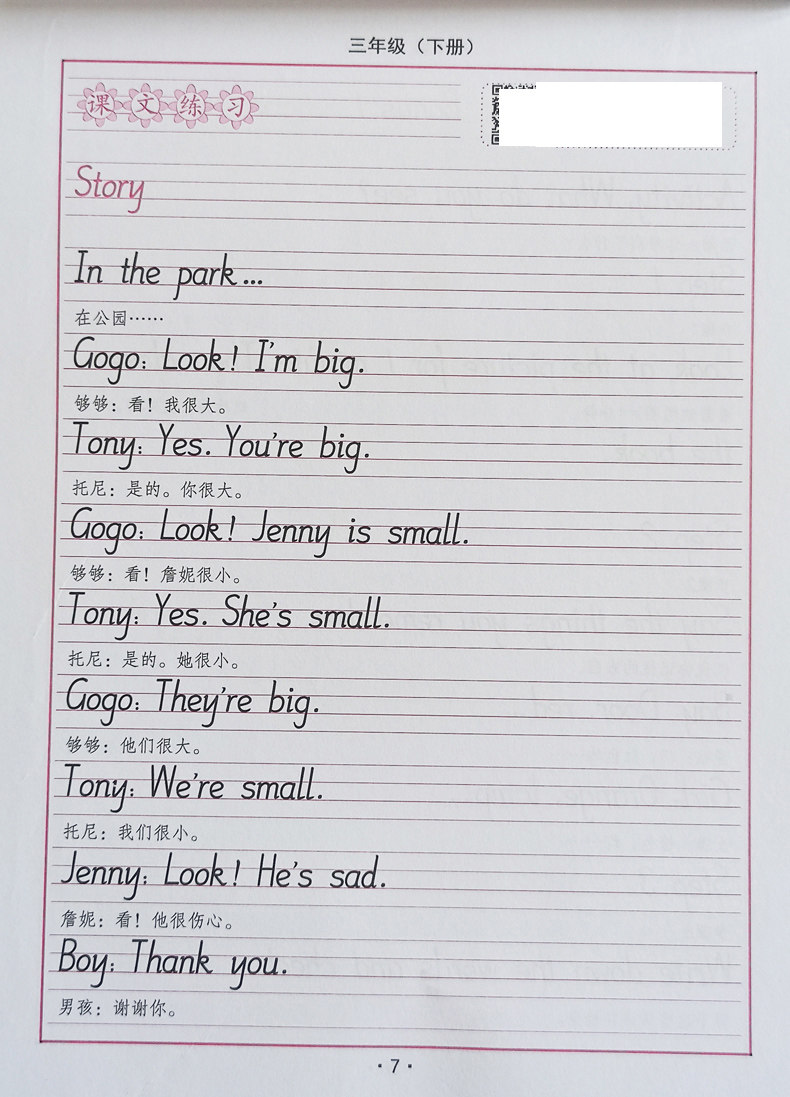 三年级（下册）
课文练习
Story
In the park...
在公园……
Gogo: Look! I'm big.
够够：看！我很大。
Tony: Yes. You're big.
托尼：是的。你很大。
Gogo: Look! Jenny is small.
够够：看！詹妮很小。
Tony: Yes. She's small.
托尼：是的。她很小。
Gogo: They're big.
够够：他们很大。
Tony: We're small.
托尼：我们很小。
Jenny: Look! He's sad.
詹妮：看！他很伤心。
Boy: Thank you.
男孩：谢谢你。
·7·